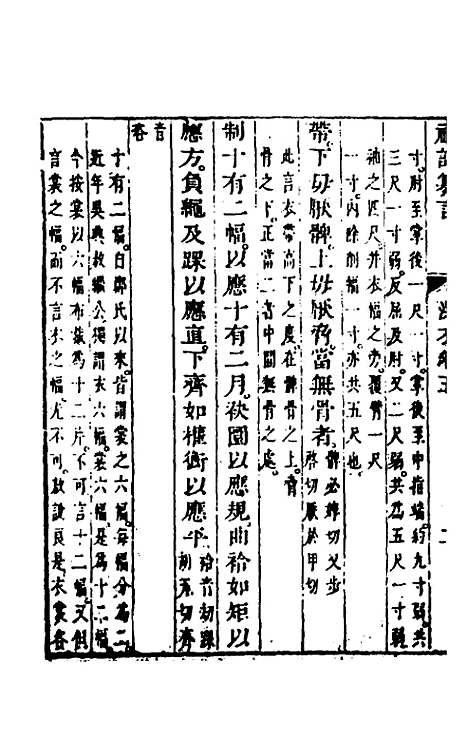 寸肘至掌後一尺一寸掌後至中指端約九寸弱共
三尺一寸弱反屈及肘又二尺弱共爲五尺一寸弱
袖之四尺并衣幅之旁覆臂一尺
一寸內除削幅一寸亦共五尺也
帶下毋厭髀上毋厭脅當無骨者
髀必婢切又步
啓切厭於甲切
此言衣帶高下之度在髀骨之上脅
骨之下正當二者中間無骨之處
制十有二幅以應十有二月袂圜以應規曲袷如矩以
應方負繩及踝以應直下齊如權衡以應平
袷音劫踝
胡瓦切齊
音咨
十有二幅自鄭氏以來皆謂裳之六幅每幅分爲二
近年吳興敖繼公獨謂衣六幅裳六幅是爲十二幅
今按裳以六幅布裁爲十二片不可言十二幅又但
言裳之幅而不言衣之幅尤不可敖說良是衣裳各